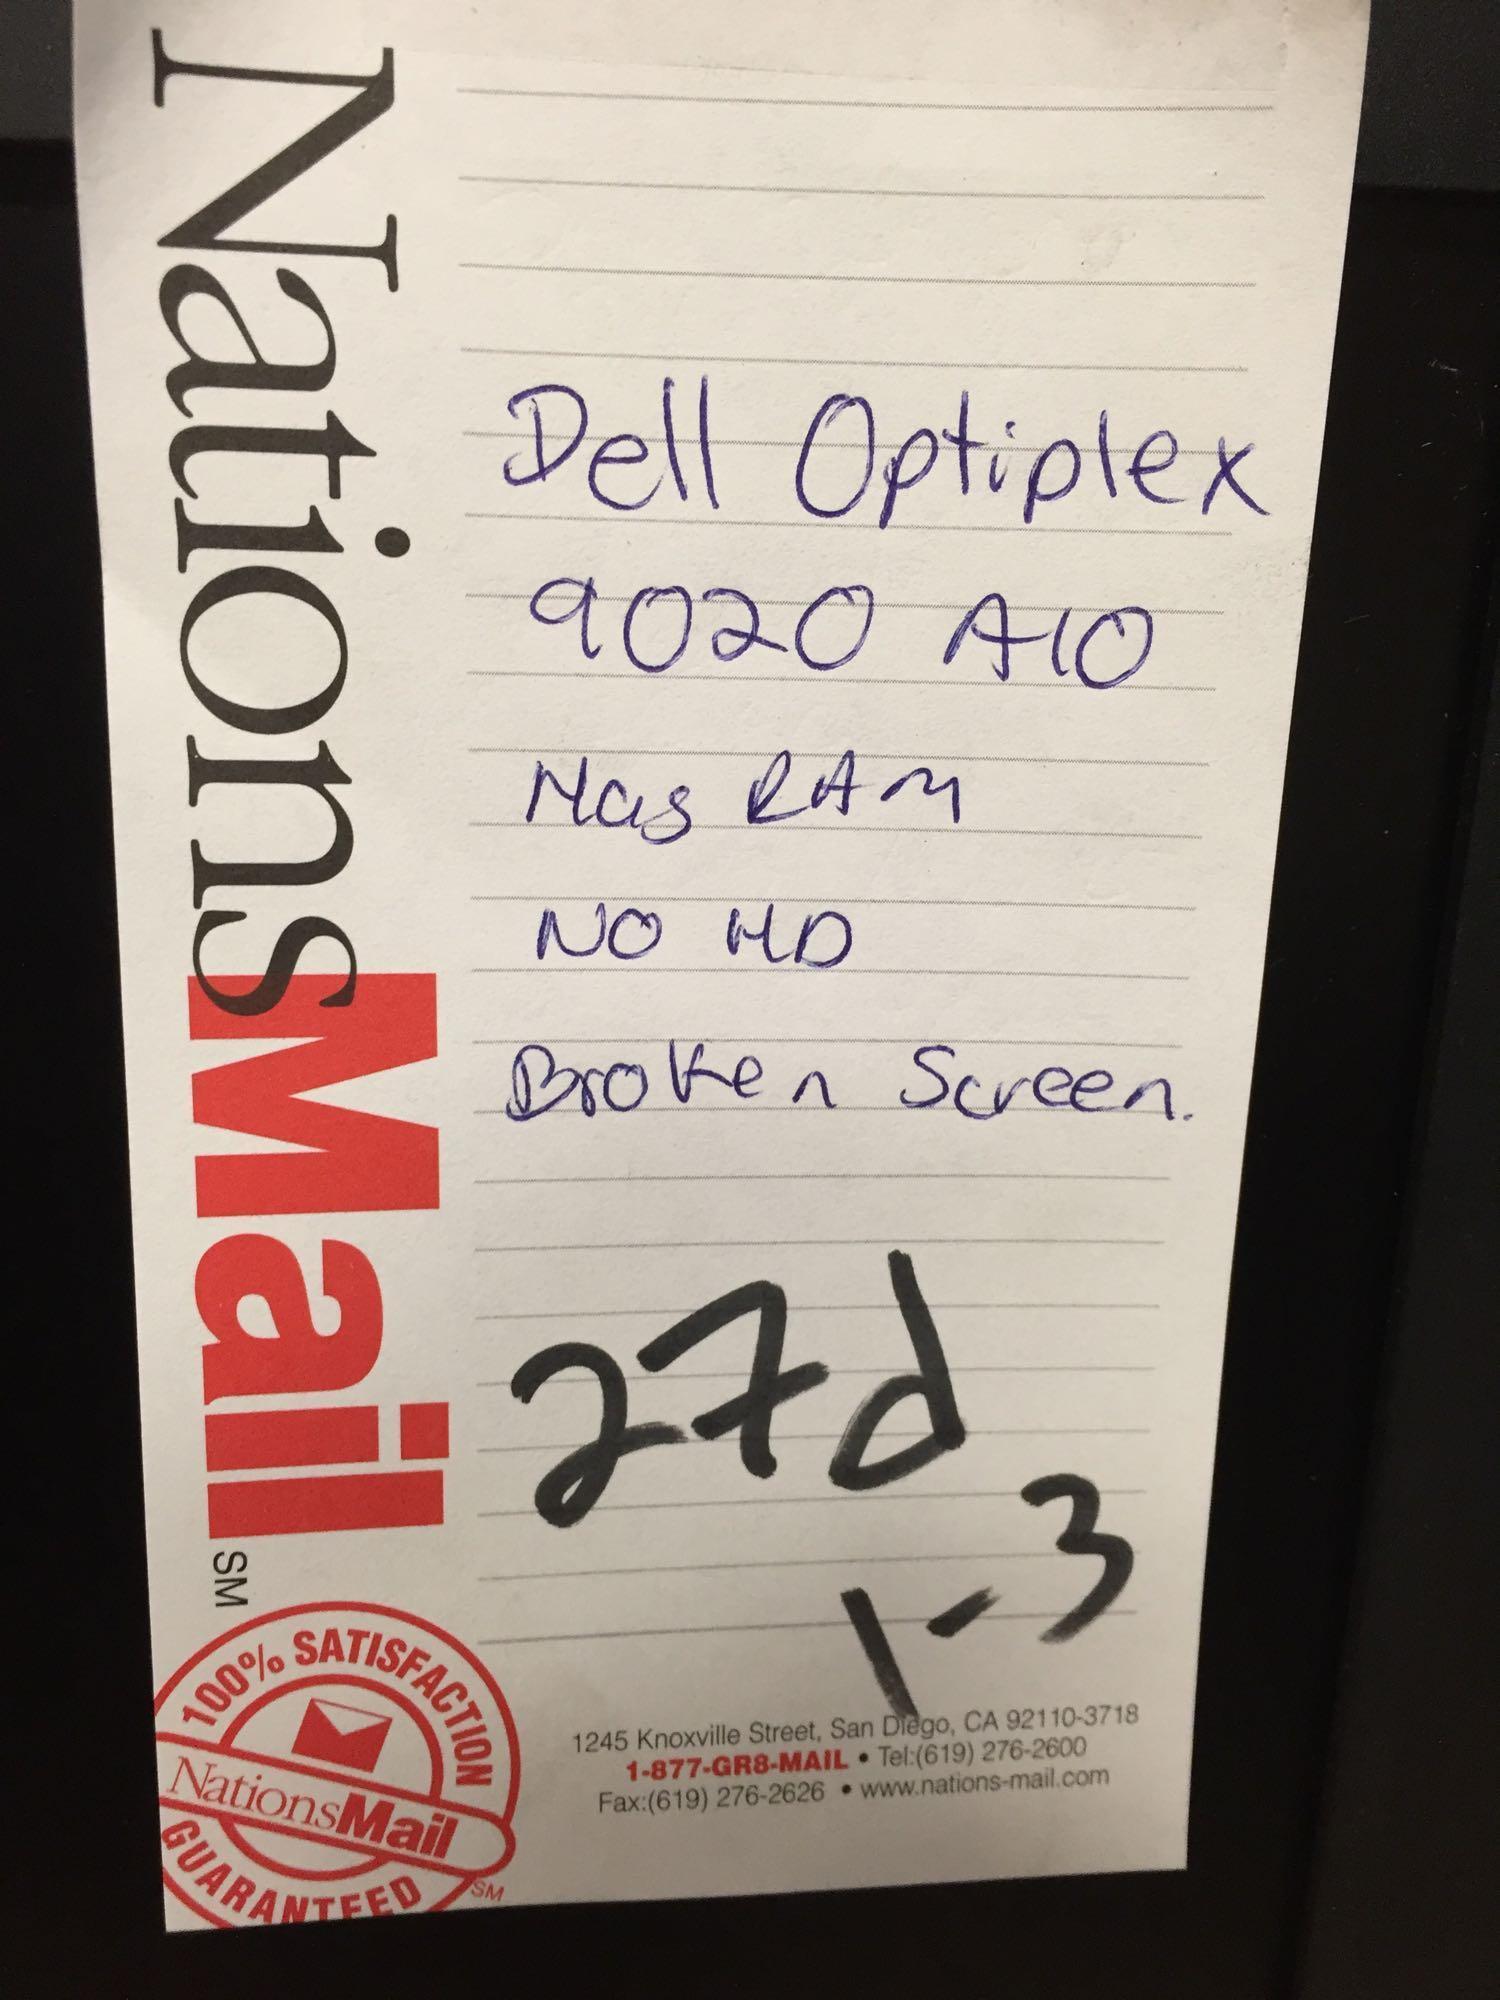 NationsMail SM
Dell Optiplex
9020 AIO
Has RAM
NO HD
Broken Screen.
27d
1-3
1245 Knoxville Street, San Diego, CA 92110-3718
1-877-GR8-MAIL • Tel:(619) 276-2600
Fax:(619) 276-2626 • www.nations-mail.com
100% SATISFACTION
NationsMail
GUARANTEED
SM